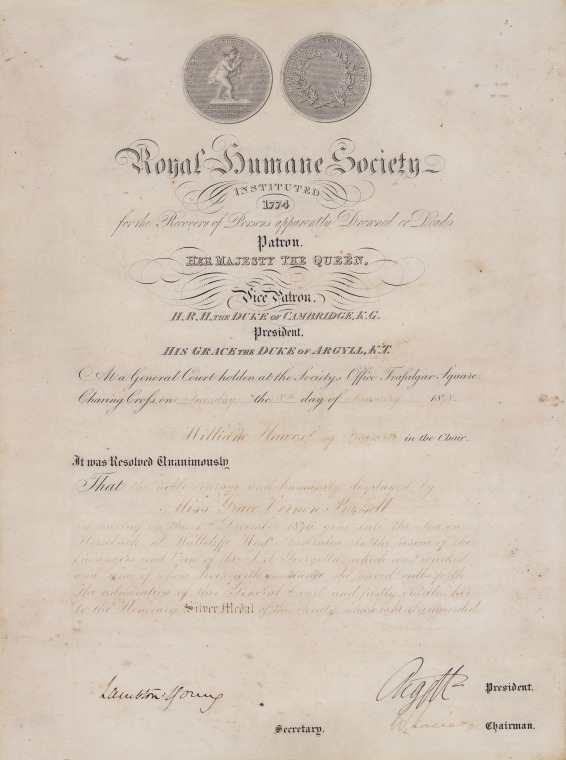 Royal Humane Society
INSTITUTED
1774
for the Recovery of Persons apparently Drowned or Dead.
Patron.
HER MAJESTY THE QUEEN.
Vice Patron.
H.R.H. THE DUKE OF CAMBRIDGE, K.G.
President.
HIS GRACE THE DUKE OF ARGYLL, K.T.
At a General Court holden at the Society's Office Trafalgar Square.
Charing Cross, on Tuesday the 8th day of January 1878
William Hawes Esq Treasurer in the Chair.
It was Resolved Unanimously
That the noble courage and humanity displayed by
Miss Grace Vernon Bussell
in having on the December 1876 gone into the Sea on
Horseback at West Australia to the rescue of the
Passengers and Crew of the S.S. Georgette, which was wrecked
and some of whose lives with assistance she saved calls forth
the admiration of this General Court and justly entitles her
to the Honorary Silver Medal of this Society which is hereby awarded
Lambton Young
Argyll
President.
Secretary.
Chairman.